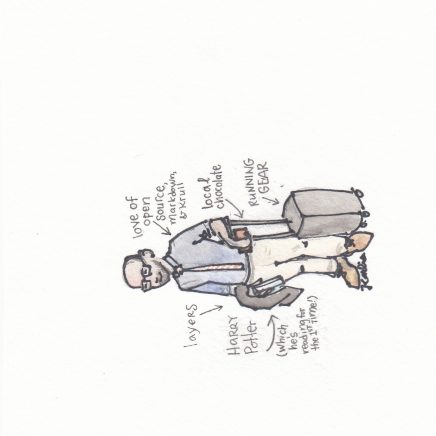 love of
open
source,
markdown,
&
local
chocolate
RUNNING
GEAR
layers
HARRY
Potter
(which
he's
reading for
the 1st time!)